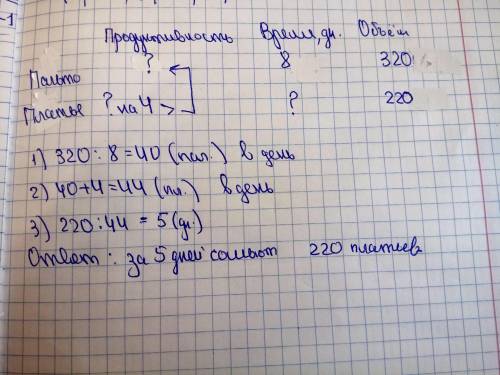 -1
Продуктивность Время, дн. Объём
Пальто ? 8 320
Платье ? на 4 > ? 220
1) 320 : 8 = 40 (пал.) в день
2) 40 + 4 = 44 (пл.) в день
3) 220 : 44 = 5 (дн.)
Ответ : за 5 дней сошьют 220 платьев